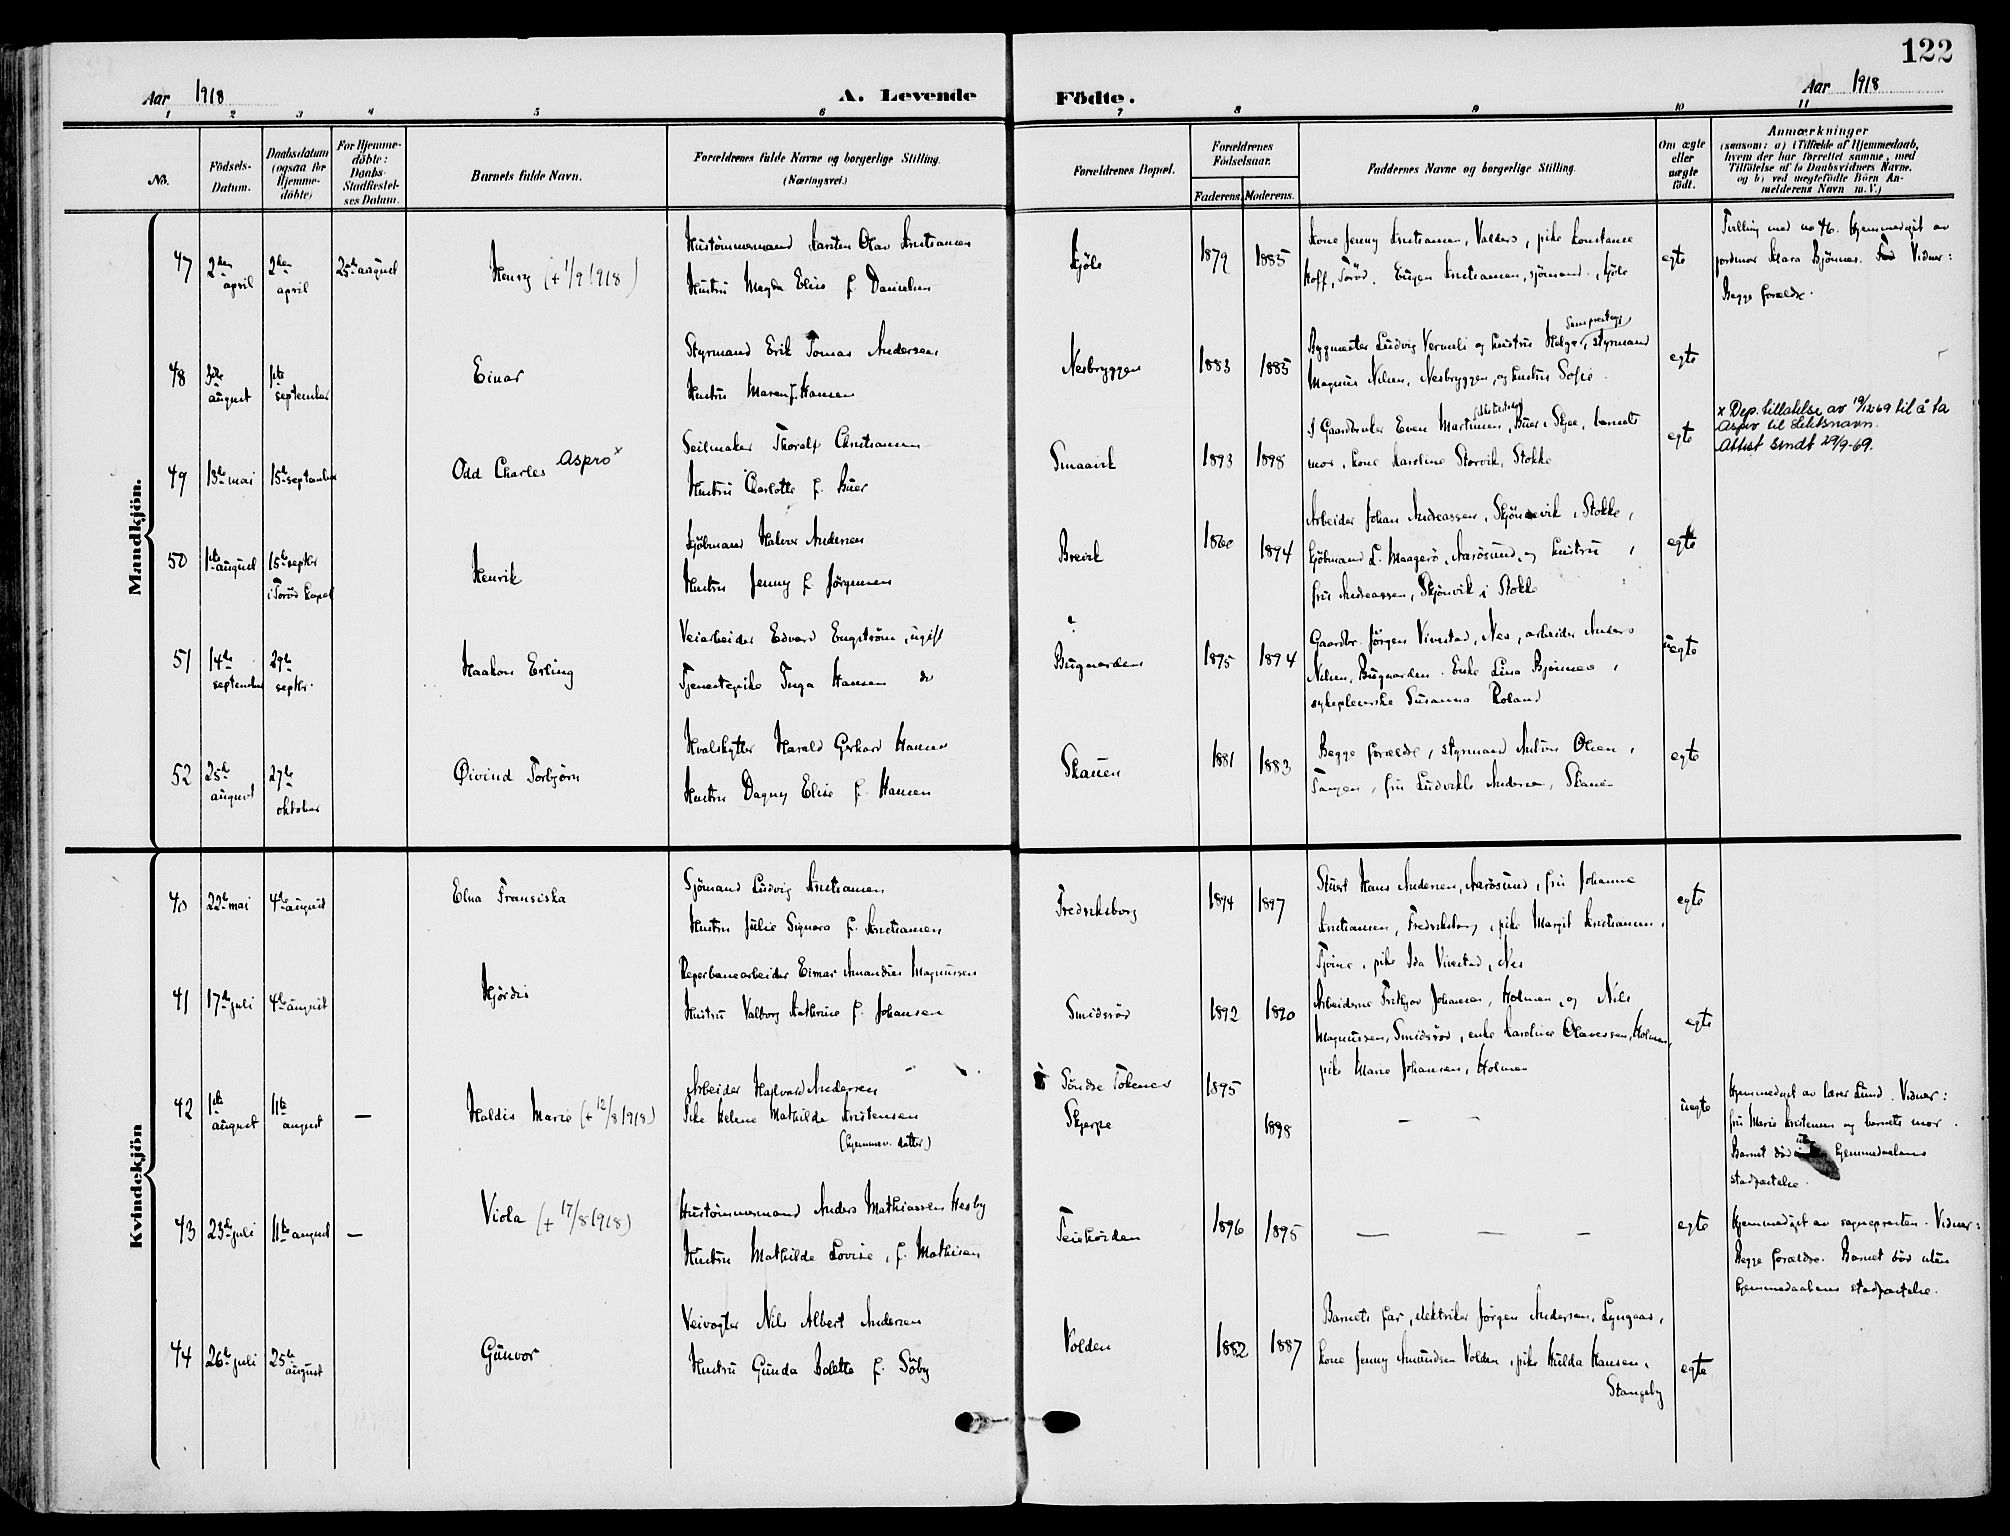 122
Aar 1918
A. Levende Födte.
Aar 1918
1 2 3 4 5 6 7 8 9 10 11
No.
Födsels-
Datum.
Daabsdatum
(ogsaa for
Hjemme-
döbte)
For Hjemme-
döbte:
Daabs-
Stadfæstel-
ses Datum.
Barnets fulde Navn.
Forældrenes fulde Navne og borgerlige Stilling.
(Næringsvei.)
Forældrenes Bopæl.
Forældrenes
Födselsaar.
Faderens. Moderens.
Faddernes Navne og borgerlige Stilling.
Om ægte
eller
uægte
födt.
Anmærkninger
(saasom: a) (Tilfælde af Hjemmedaab,
hvem der har forrettet samme, med
Tilföielse af to Daabsvidners Navne,
og b) ved uægtefödte Börn An-
melderens Navn m. V.)
Mandkjön.
47
2den
april
2den
april
25de august
Henry (+ 1/9 1918)
Hustömmermand Karsten Olav Kristiansen
Hustru Magda Elise f. Danielsen
Kjöle
1879
1885
Kone Jenny Kristiansen, Valderö, pike Konstance
Hoff, Torød. Eugen Kristiansen, sjömand, Kjöle
egte
Tvilling med no 46. Hjemmedöpt av
jordmor Klara Bjönnes. Vidner:
Begge forældre.
48
3die
august
1ste
september
Einar
Styrmand Erik Tomas Andersen
Hustru Maren f. Hansen
Nesbryggen
1883
1885
Bygmester Ludvig Vermeli og hustru Helga, styrmand
Magnus Nilsen, Nesbryggen, og hustru Sofie.
egte
49
13de mai
15de september
Odd Charles Aspro x
Seilmaker Thoralf Christiansen
Hustru Charlotte f. Buer
Smaavik
1893
1898
Gaardbruker Even Martinsen, Buer i Skjee, barnets
mor, kone Karoline Storvik, Stokke
egte
x Dep. tillatelse av 19/12-69 til å ta
Aspro til slektsnavn.
Attest sendt 29/9-69.
50
1ste august
15de septbr
i Torød kapel
Henrik
Kjöbmand Halvor Andersen
Hustru Jenny f. Jörgensen
Brevik
1860
1894
Arbeider Johan Andreassen, Skjönsvik i Stokke,
kjöbmand L. Maagerö, Aarösund, og hustru,
fru Andreassen, Skjönvik i Stokke
egte
51
14de
september
29de
septbr.
Haakon Erling
Veiarbeider Edvard Engström, ugift
Tjenestepike Inga Hansen do
?
Bugaarden
1895
1894
Gaardbr. Jörgen Vivestad, Nes, arbeider Anders
Nilsen, Bugaarden. Enke Lina Bjönnes,
sykepleierske Susanna Roland
uegte
52
25de
august
27de
oktober
Øivind Torbjörn
Hvalskytter Harald Gerhard Hansen
Hustru Dagny Elise f. Hansen
Skauen
1881
1883
Begge forældre, styrmand Anton Olsen,
Tangen, fru Ludvikke Andersen, Skauen
egte
Kvindekjön
40
22de mai
4de august
Elna Fransiska
Sjömand Ludvig Kristiansen
Hustru Julie Signora f. Kristiansen
Fredriksborg
1894
1897
Stuert Hans Andersen, Aarösund, fru Johanne
Kristiansen, Fredriksborg, pike Margit Kristiansen,
Tjöme, pike Ida Vivestad, Nes
egte
41
17de juli
4de august
Hjördis
Reperbanearbeider Einar Amandus Magnussen
Hustru Valborg Kathrine f. Johansen
Smidsröd
1892
1890
Arbeiderne Fritjov Johansen, Holmen, og Nils
Magnussen, Smidsröd, enke Karoline Olaversen, Holmen,
pike Marie Johansen, Holmen
egte
42
1ste
august
11te
august
—
Haldis Marie (+ 12/8 1918)
Arbeider Halvard Andersen
Pike Helene Mathilde Kristensen
(hjemmev. datter)
Söndre Tokenes
Skjerpe
1895
1898
— —
uegte
Hjemmedöpt av lærer Lund. Vidner:
fru Marie Kristensen og barnets mor.
Barnet död uten hjemmedaabens
stadfæstelse.
43
23de juli
11te august
—
Viola (+ 17/8 1918)
Hustömmermand Anders Mathiassen Hesby
Hustru Mathilde Lovise, f. Mathisen
Feiekörden
1896
1895
— — —
egte
Hjemmedöpt av sognepresten. Vidner:
Begge forældre. Barnet död uten
hjemmedaabens stadfæstelse.
44
26de juli
25de
august
Gunvor
Veivogter Nils Albert Andersen
Hustru Gunda Bolette f. Söby
Volden
1882
1887
Barnets far, elektriker Jörgen Andersen, Lyngaas,
kone Jenny Amundsen Volden, pike Hulda Hansen,
Stangeby
egte